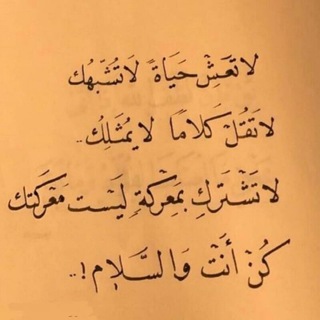 لا تعش حياةً لا تشبهك
لا تقل كلامًا لا يمثلك ..
لا تشترك بمعركةٍ ليست معركتك
كن أنت والسلام ! ..